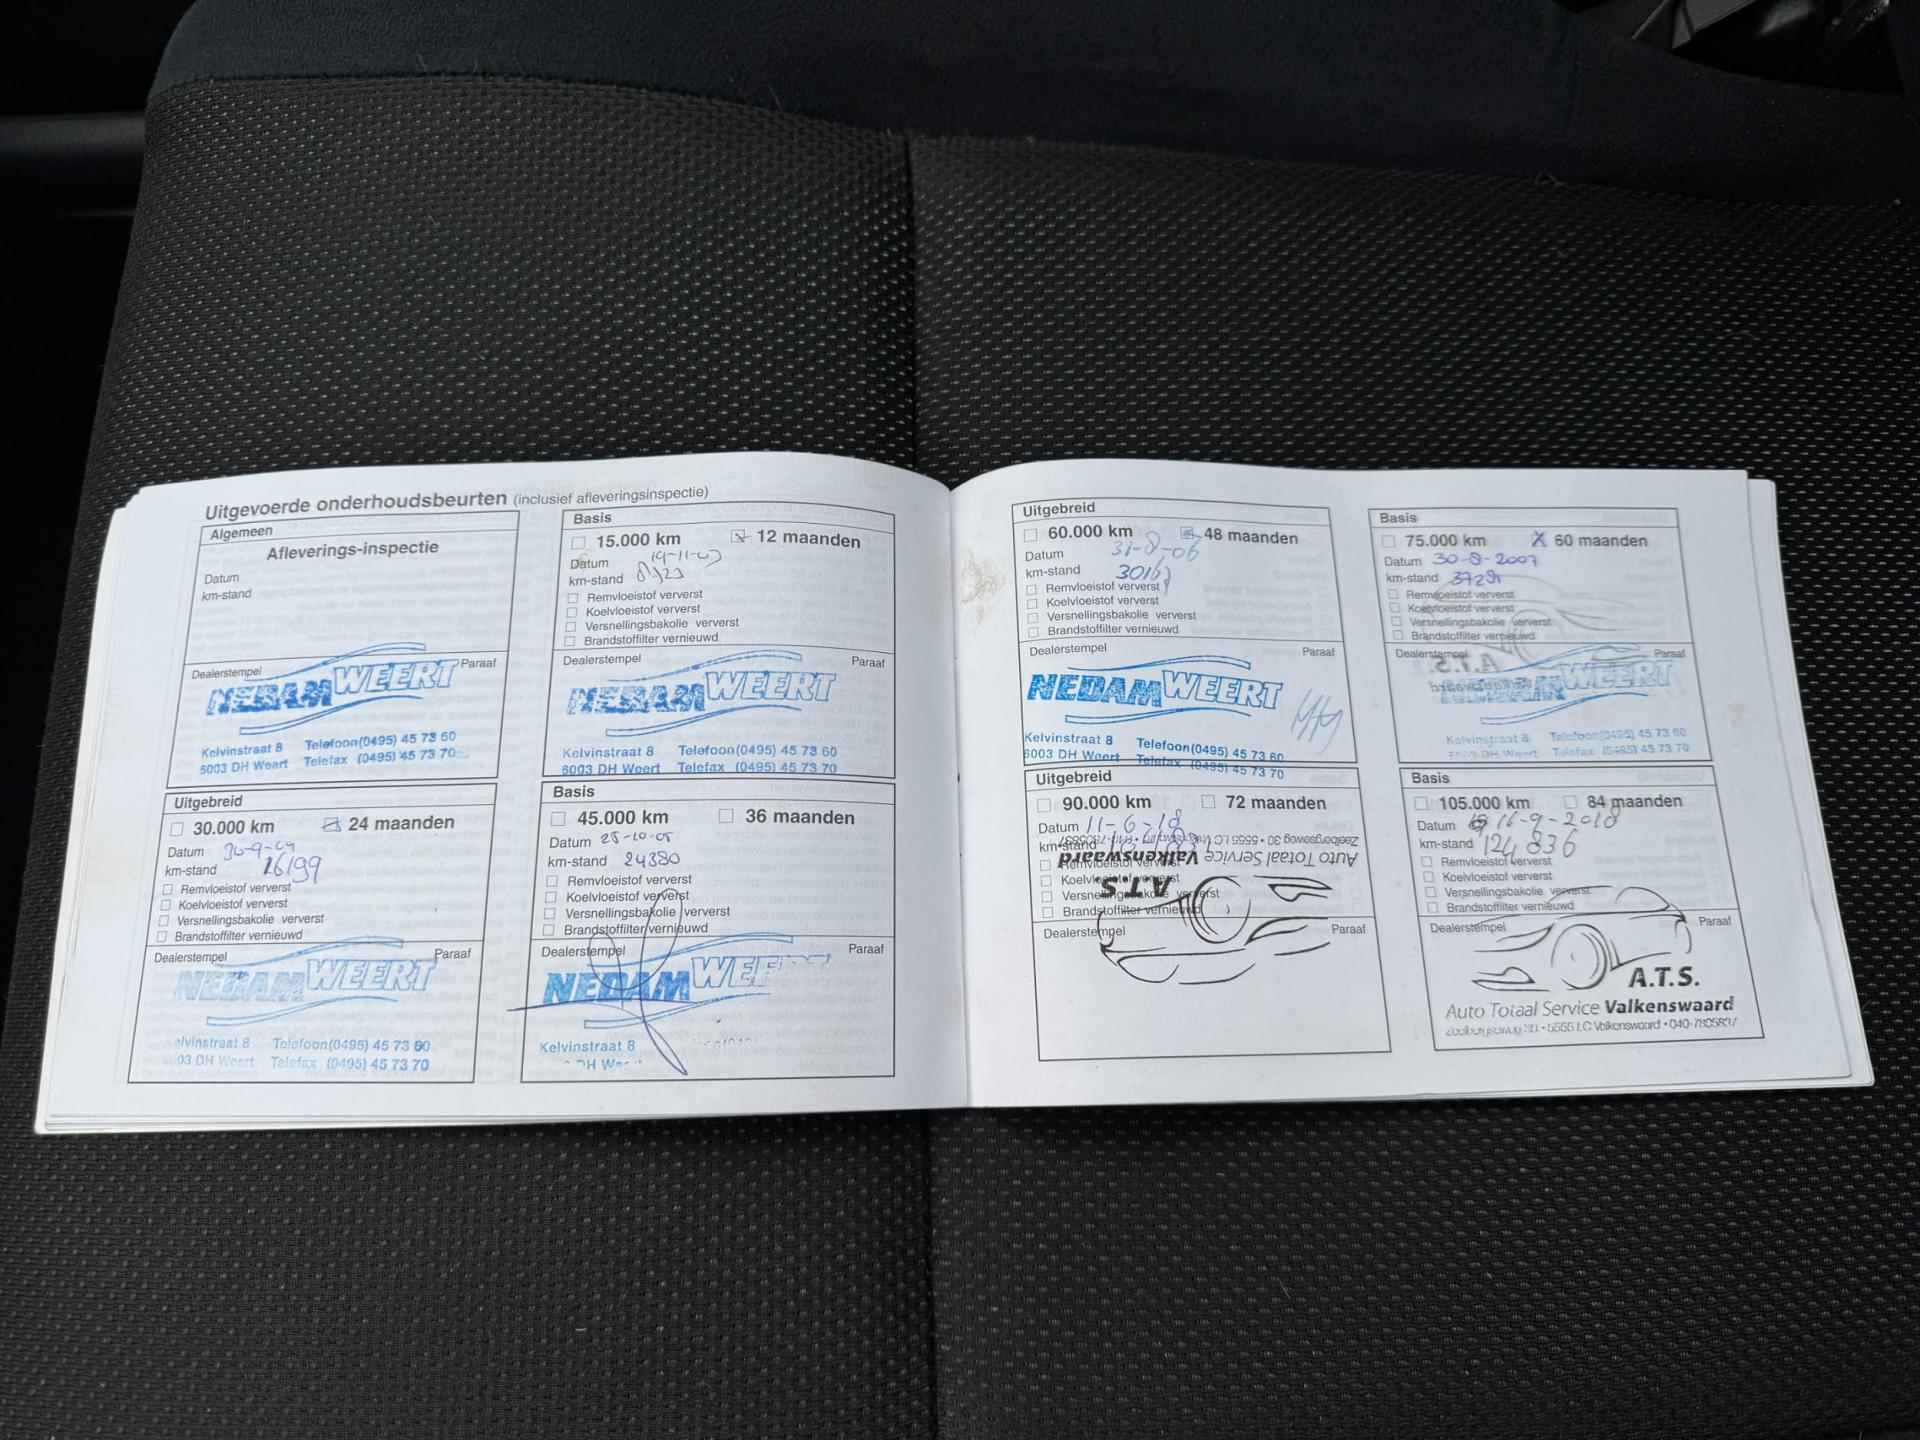 Uitgevoerde onderhoudsbeurten (inclusief afleveringsinspectie)
Algemeen
Afleverings-inspectie
Datum
km-stand
Dealerstempel
Paraaf
NEDAM WEERT
Kelvinstraat 8 Telefoon (0495) 45 73 60
6003 DH Weert Telefax (0495) 45 73 70
Basis
15.000 km 12 maanden
Datum 19-11-03
km-stand
Remvloeistof ververst
Koelvloeistof ververst
Versnellingsbakolie ververst
Brandstoffilter vernieuwd
Dealerstempel
Paraaf
NEDAM WEERT
Kelvinstraat 8 Telefoon (0495) 45 73 60
6003 DH Weert Telefax (0495) 45 73 70
Uitgebreid
30.000 km 24 maanden
Datum 30-9-04
km-stand 16199
Remvloeistof ververst
Koelvloeistof ververst
Versnellingsbakolie ververst
Brandstoffilter vernieuwd
Dealerstempel
Paraaf
NEDAM WEERT
Kelvinstraat 8 Telefoon (0495) 45 73 60
03 DH Weert Telefax (0495) 45 73 70
Basis
45.000 km 36 maanden
Datum 25-10-05
km-stand 24380
Remvloeistof ververst
Koelvloeistof ververst
Versnellingsbakolie ververst
Brandstoffilter vernieuwd
Dealerstempel
Paraaf
NEDAM WEERT
Kelvinstraat 8
DH
Uitgebreid
60.000 km 48 maanden
Datum 31-8-06
km-stand 30167
Remvloeistof ververst
Koelvloeistof ververst
Versnellingsbakolie ververst
Brandstoffilter vernieuwd
Dealerstempel
Paraaf
NEDAM WEERT
Kelvinstraat 8 Telefoon (0495) 45 73 60
6003 DH Weert Telefax (0495) 45 73 70
Basis
75.000 km X 60 maanden
Datum 30-8-2007
km-stand
Remvloeistof ververst
Koelvloeistof ververst
Versnellingsbakolie ververst
Brandstoffilter vernieuwd
Dealerstempel
Paraaf
WEERT
Kelvinstraat 8 Telefoon (0495) 45 73 60
DH Weert Telefax (0495) 45 73 70
Uitgebreid
90.000 km 72 maanden
Datum 11-6-18
km-stand
Remvloeistof ververst
Koelvloeistof ververst
Versnellingsbakolie ververst
Brandstoffilter vernieuwd
Dealerstempel
Paraaf
A.T.S.
Auto Totaal Service Valkenswaard
Basis
105.000 km 84 maanden
Datum 11-9-2018
km-stand 124836
Remvloeistof ververst
Koelvloeistof ververst
Versnellingsbakolie ververst
Brandstoffilter vernieuwd
Dealerstempel
Paraaf
A.T.S.
Auto Totaal Service Valkenswaard
5555 LC Valkenswaard